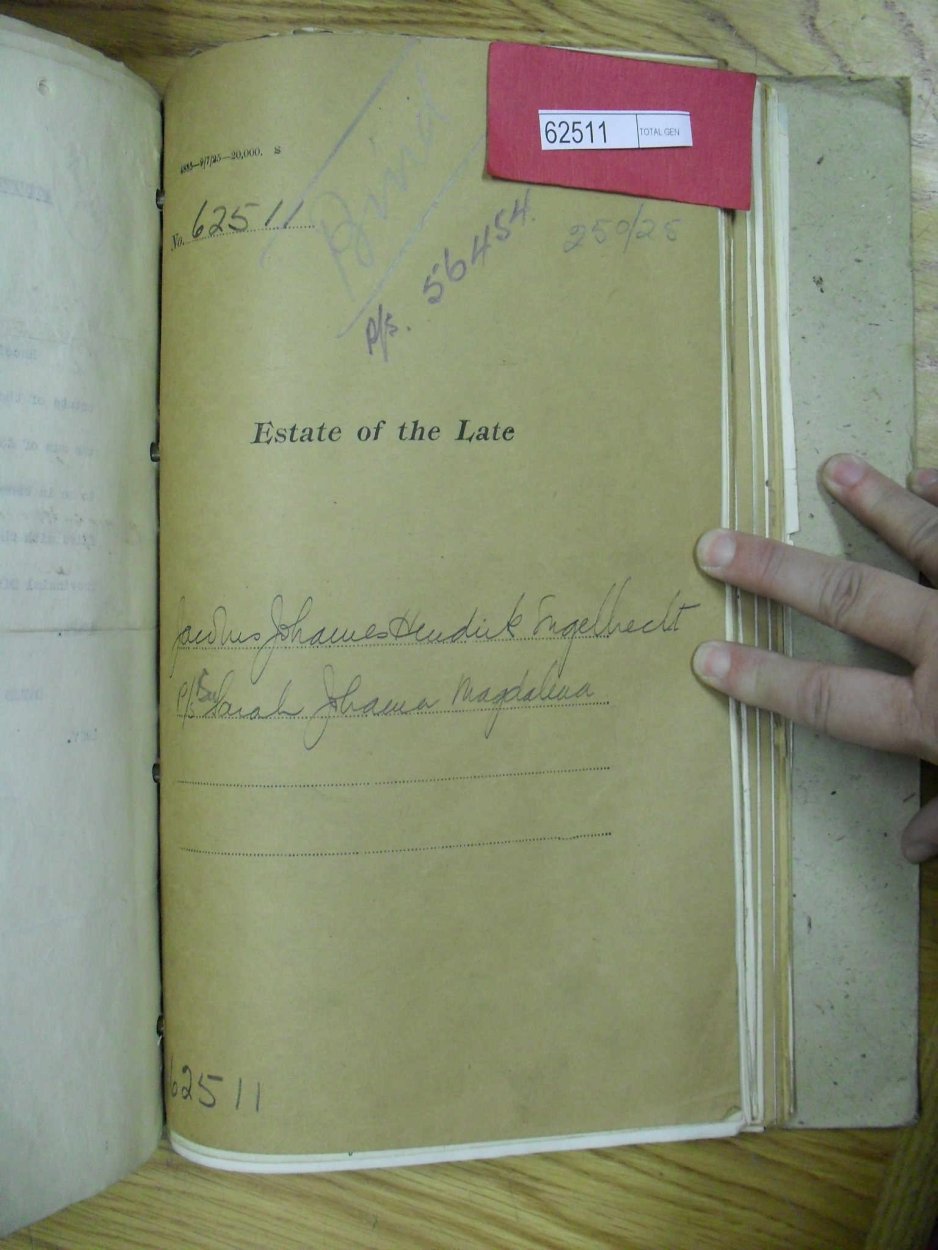 62511 TOTAL GEN
1885—9/7/25—20,000. S
No. 62511
P/s. 56454.
250/25
Estate of the Late
Jacobus Johannes Hendrik Engelbrecht
P/s Sarah Johanna Magdalena
62511